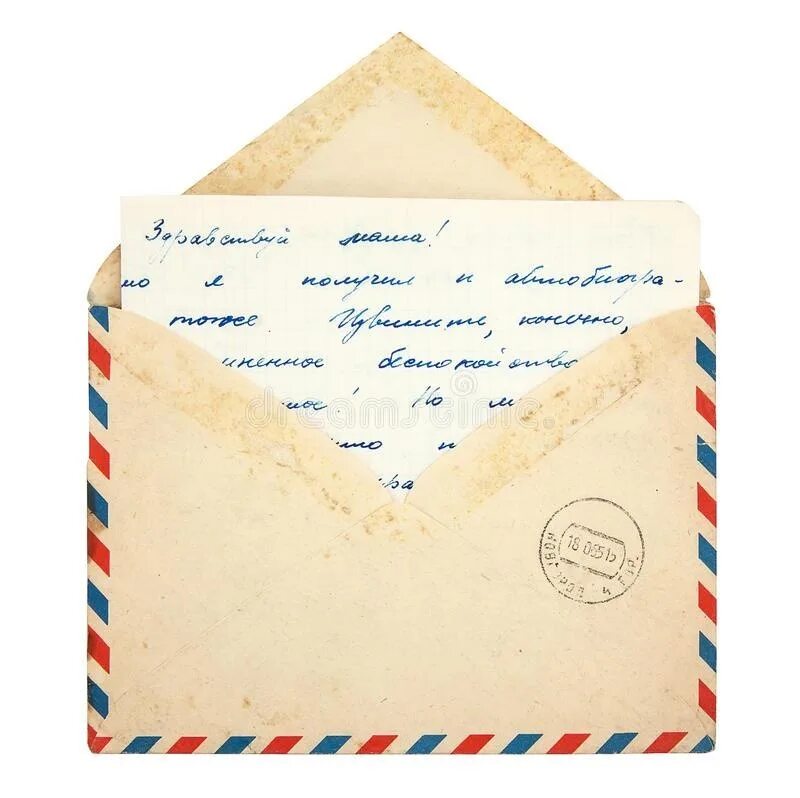 Здравствуй мама!
но я получил и автобиогра-
тоже Извините, конечно,
иненное беспокойство
мое! Но м
что н
ира
dreamstime
18 0655 15